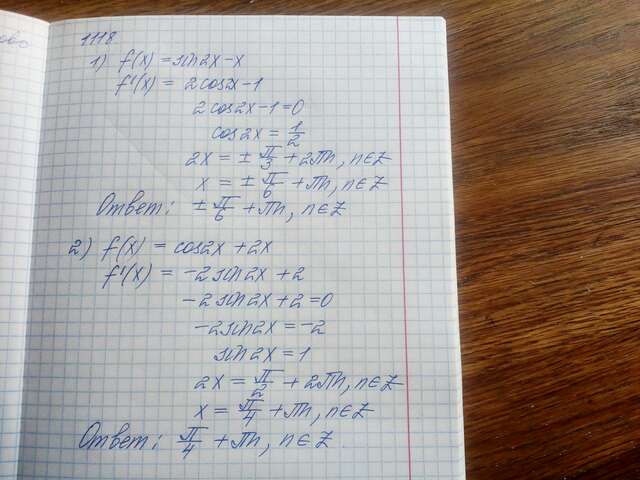 ово
1118
1) f(x) = sin2x - x
f'(x) = 2cos2x - 1
2cos2x - 1 = 0
cos2x = 1/2
2x = ± π/3 + 2πn, n∈Z
x = ± π/6 + πn, n∈Z
Ответ: ± π/6 + πn, n∈Z
2) f(x) = cos2x + 2x
f'(x) = -2sin2x + 2
-2sin2x + 2 = 0
-2sin2x = -2
sin2x = 1
2x = π/2 + 2πn, n∈Z
x = π/4 + πn, n∈Z
Ответ: π/4 + πn, n∈Z.